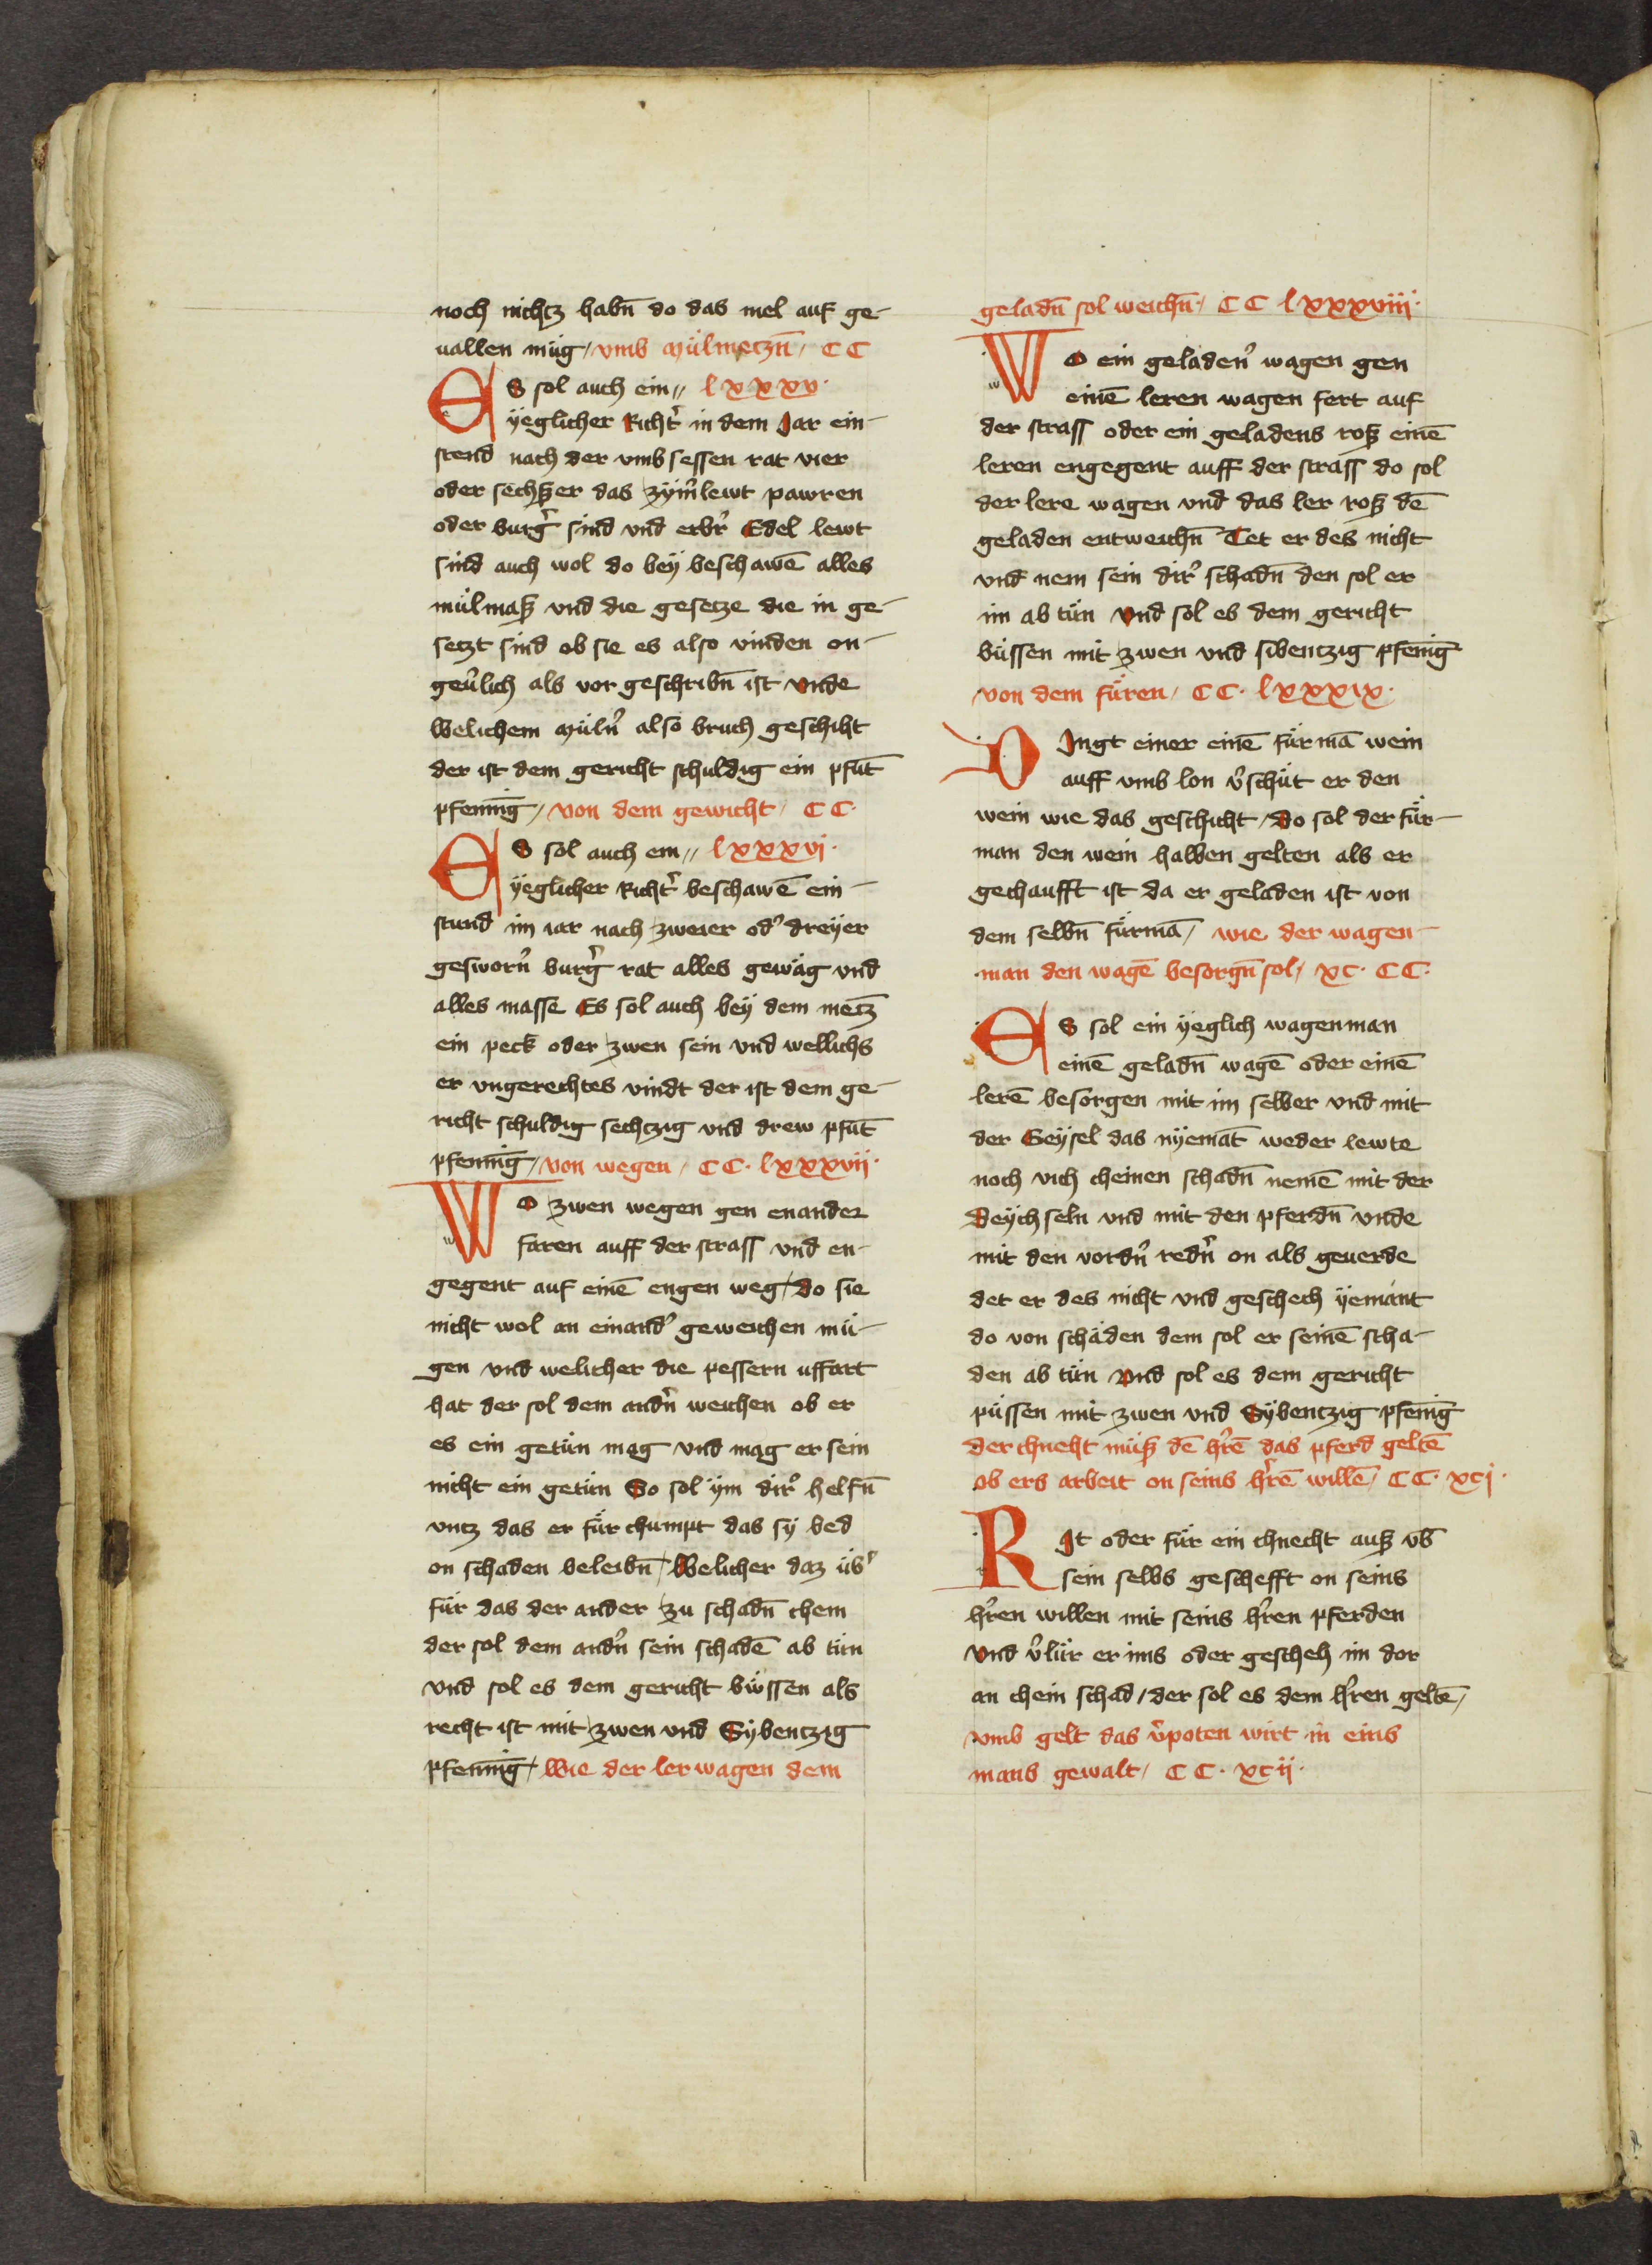 noch nichtz habn̄ do das mel auf ge-
uallen müg / vmb mülmeczn̄ / CC
ES sol auch ein // lxxxv ·
ÿeglicher Richt͛ in dem Jar ein-
stend nach der vmbsessen rat vier
oder sechsz̈er das zÿm̄lewt pawren
oder burg͛ sind vnd erbr͛ Edel lewt
sind auch wol do beÿ beschawē alles
mülmasz vnd die gesetze die in ge-
setzt sind ob sie es also vinden on-
geu͛lich als vor geschribn̄ ist vnde
Welichem müln͛ also bruch geschiht
der ist dem gericht schuldig ein pfūt
pfenni̅g / von dem gewicht / CC ·
ES sol auch ein // lxxxvj ·
ÿeglicher Richt͛ beschawē ein-
stund im iar nach zweier od͛ dreÿer
gesworn͛ burg͛ rat alles gewäg vnd
alles masse Es sol auch beÿ dem metz̄
ein peck oder zwen sein vnd wellichs
er vngerechtes vindt der ist dem ge-
richt schuldig sechtzig vnd drew pfūt
pfenni̅g / von wegen / CC · lxxxvij ·
WO zwen wegen gen enander
faren auff der strass vnd en-
gegent auf einē engen weg / do sie
nicht wol an einand͛ geweichen mü-
gen vnd welicher die pessern uffart
hat der sol dem andn͛ weichen ob er
es ein getün mag vnd mag er sein
nicht ein getün So sol ÿm dir͛ helfn̄
vntz das er für chumpt das sÿ bed
on schaden beleibn̄ / Welicher daz üb͛
für das der ander zu schadn̄ chem
der sol dem andn͛ sein schadē ab tün
vnd sol es dem gericht büssen als
recht ist mit zwen vnd Sÿbentzig
pfenni̅g / Wie der ler wagen dem
geladn̄ sol weichn̄ / CC lxxxviij ·
WO ein geladen͛ wagen gen
einē leren wagen fert auf
der strass oder ein geladens rosz einē
leren engegent auff der strass do sol
der lere wagen vnd das ler rosz dē
geladen entweichn̄ Tet er des nicht
vnd nem sein dir͛ schadn̄ den sol er
im ab tün vnd sol es dem gericht
büssen mit zwen vnd sibentzig pfēni̅g
von dem füren / CC · lxxxix ·
DJngt einer einē fürmā wein
auff vmb lon v͛schüt er den
wein wie das geschicht / Do sol der für-
man den wein halben gelten als er
gechaufft ist da er geladen ist von
dem selbn̄ fürmā / wie der wagen-
man den wagē besorgn̄ sol / xc · CC ·
ES sol ein ÿeglich wagenman
einē geladn̄ wagē oder einē
lerē besorgen mit im selber vnd mit
der Geÿsel das nÿemāt weder lewte
noch vich cheinen schadn̄ nemē mit der
Deÿchseln vnd mit den pferdn̄ vnde
mit den vordn͛ redn͛ on als geuerde
det er des nicht vnd geschech ÿemant
do von schäden dem sol er seinē scha-
den ab tün vnd sol es dem gericht
püssen mit zwen vnd Sÿbentzig pfēni̅g
der chneht müsz dē hr͛ē das pferd geltē
ob ers arbeit on seins hr͛ē willē / CC · xcj ·
RJt oder für ein chnecht ausz vb̄
sein selbs geschefft on seins
hr͛en willen mit seins hr͛en pferden
vnd v͛lür er ims oder gescheh im dor
an chein schad / der sol es dem hr͛en geltē /
vmb gelt das v͛poten wirt in eins
mans gewalt / CC · xcij ·